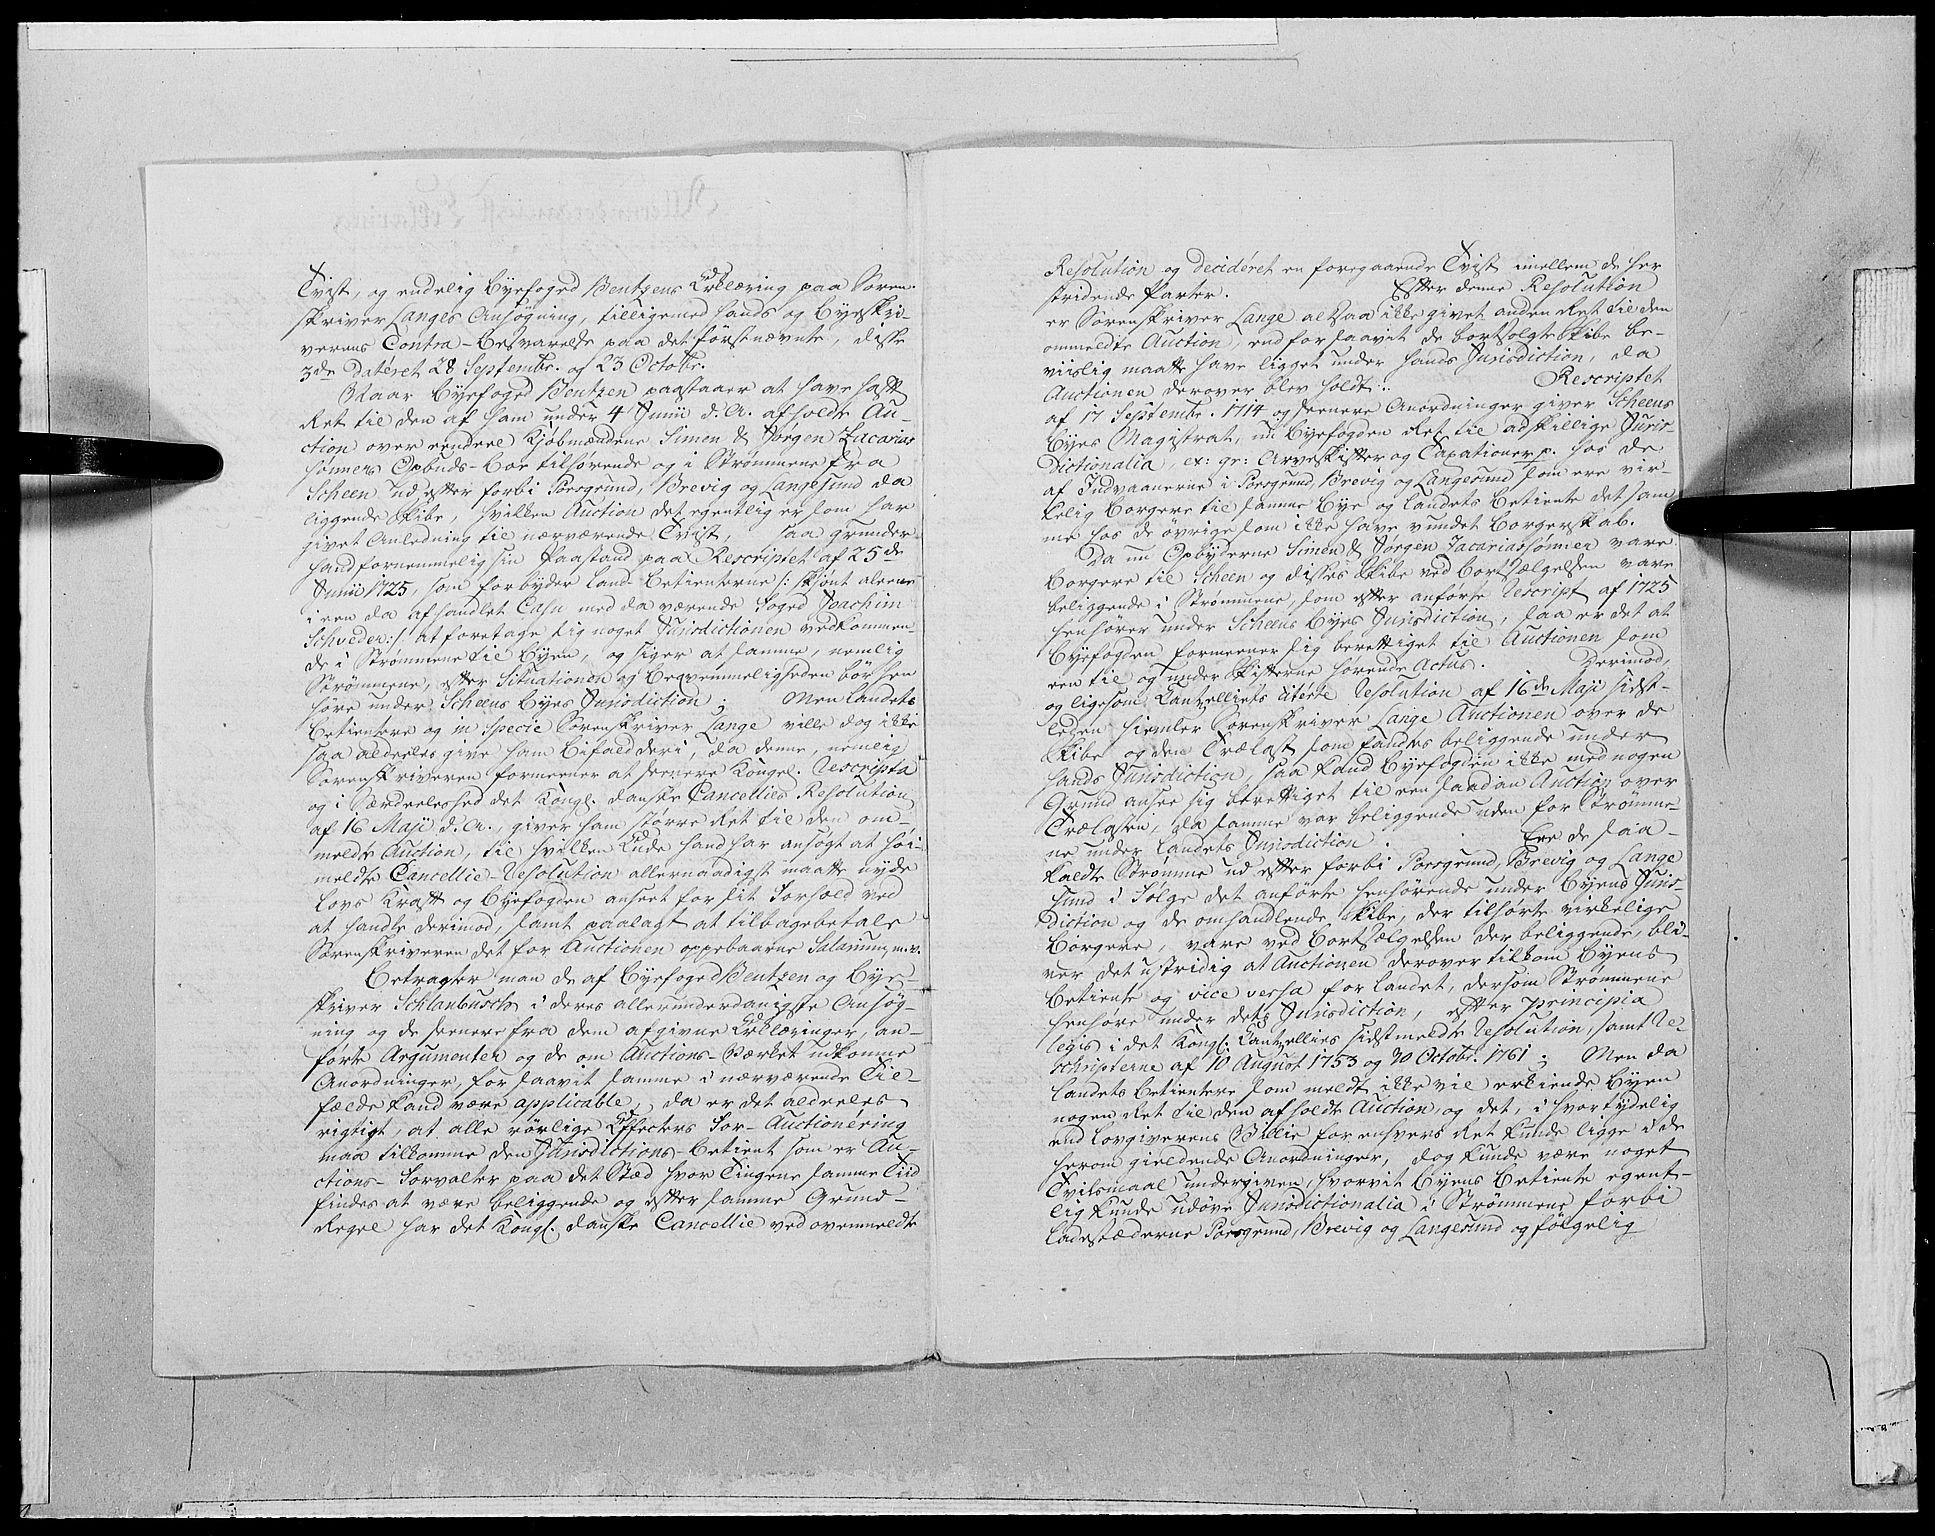 Tvist, og endelig Byefoged Bentzens Erklæring paa Soren-
skriver Langes Ansøgning, tilligemed hands og Byeskri-
verens Contra-besvarelse paa det førstnævnte, disse
3de dateret 28 Septembr. og 23 Octobr.
Naar Byefoged Bentzen paastaaer at have haft
Ret til den af ham under 4 Junii d. A. afholdte Au-
ction over eendeel Kjøbmændene Simen & Jørgen Zacarias
sønners Opbuds-boe tilhørende og i Strømmene fra
Scheen ud efter forbi Porsgrund, Brevig og Langesund da
liggende Skibe, hvilken Auction det egentlig er som har
givet Anledning til nærværende Tvist, saa grunder
hand fornemmelig sin Paastand paa Rescriptet af 25de
Junii 1725, som forbyder land betienterne /: skjønt aleene
i een da afhandlet Casu med da værende foged Joachim
Schweder :/ at foretage sig noget Jurisdictionen vedkommen-
de i Strømmene til Byen, og siger at samme, nemlig
Strømmene, efter Situationen og beqvemmeligheden bør hen
høre under Scheens Byes Jurisdiction; Men landets
betientere og in Specie Sorenskriver Lange ville dog ikke
saa aldeeles give ham bifald deri, da denne, nemlig
Sorenskriveren formeener at seenere Kongel. Rescripta
og i Særdeeleshed det Kongl. danske Cancellies Resolution
af 16 Maji d. A., giver ham større Ret til den om-
meldte Auction, til hvilken Ende hand har ansøgt at høi-
meldte Cancellie-Resolution allernaadigst maatte nyde
Lovs Kraft og Byefogden anseet for sit Forhold ved
at handle derimod, samt paalagt at tilbagebetale
Sorenskriveren det for Auctionen oppebaarne Salarium, m. v.
Betragter man de af Byefoged Bentzen og Bye-
skriver Schlanbusch i deres allerunderdanigste Ansøg-
ning og de seenere fra dem afgivne Erklæringer, an-
førte Argumenter og de om Auctions-Værket udkomne
Anordninger, for saavit samme i nærværende Til-
fælde kand være applicable, da er det aldeeles
rigtigt, at alle rørlige Effecters For-Auctionering
maa tilkomme den Jurisdictions-betient som er Au-
ctions-Forvalter paa det Stæd hvor Tingene samme Tiid
findes at være beliggende og efter samme Grund-
Regel har det Kongl. danske Cancellie ved ovenmeldte
Resolution og decideret en foregaaende Tvist imellem de her
stridende Parter. Efter denne Resolution
er Sorenskriver Lange altsaa ikke givet anden Ret til den
ommeldte Auction, end for saavit de bortsolgte Skibe be-
viislig maatte have ligget under hands Jurisdiction, da
Auctionen derover blev holdt. Rescriptet
af 17 Septembr. 1714 og seenere Anordninger giver Scheens
Byes Magistrat, nu Byefogden Ret til adskillige Juris-
dictionalia, ex: gr: Arveskifter og Taxationer p. hos de
af Indvaanerne i Porsgrund, Brevig og Langesund som ere vir-
kelig borgere til samme Bye og landets betiente det sam
me hos de øvrige som ikke have vundet borgerskab.
Da nu Opbyderne Simen & Jørgen Zacariassønner vare
borgere til Scheen og disses Skibe ved bortsælgelsen vare
beliggende i Strømmene, som efter anførte Rescript af 1725
henhører under Scheens Byes Jurisdiction, saa er det at
Byefogden formeener sig berettiget til Auctionen som
een til og under Skifterne hørende Actus. Derimod,
og ligesom Cantzelliets citerte Resolution af 16de Maji sidst-
leden hiemler Sorenskriver Lange Auctionen over de
Skibe og den Trælast som fandtes beliggende under
hands Jurisdiction, saa kand Byefogden ikke med nogen
Grund ansee sig berettiget til een saadan Auction over
Trælasten, da samme var beliggende uden for Strømme-
ne under landets Jurisdiction. Ere de saa-
kaldte Strømme ud efter forbi Porsgrund, Brevig og Lange
sund i Følge det anførte henhørende under Byens Juris-
diction og de omhandlende Skibe, der tilhørte virkelige
borgere, vare ved bortsælgelsen der beliggende, bli-
ver det ustridig at Auctionen derover tilkom Byens
betiente og vice versa for landet, dersom Strømmene
henhøre under dets Jurisdiction, efter principia
legis i det Kongl. Cantzellies sidstmeldte Resolution, samt Re-
schripterne af 10 August 1753 og 30 Octobr. 1761; Men da
landets betientere som meldt ikke vil erkiende Byen
nogen Ret til den afholdte Auction, og det, i hvor tydelig
end Lovgiverens Villie for enhvers Ret kunde ligge i de
herom gieldende Anordninger, dog kunde være noget
Tvilsmaal undergiven, hvorvit Byens betiente egent-
lig kunde udøve Jurisdictionalia i Strømmene forbi
ladestæderne Porsgrund, Brevig og Langesund og følgelig